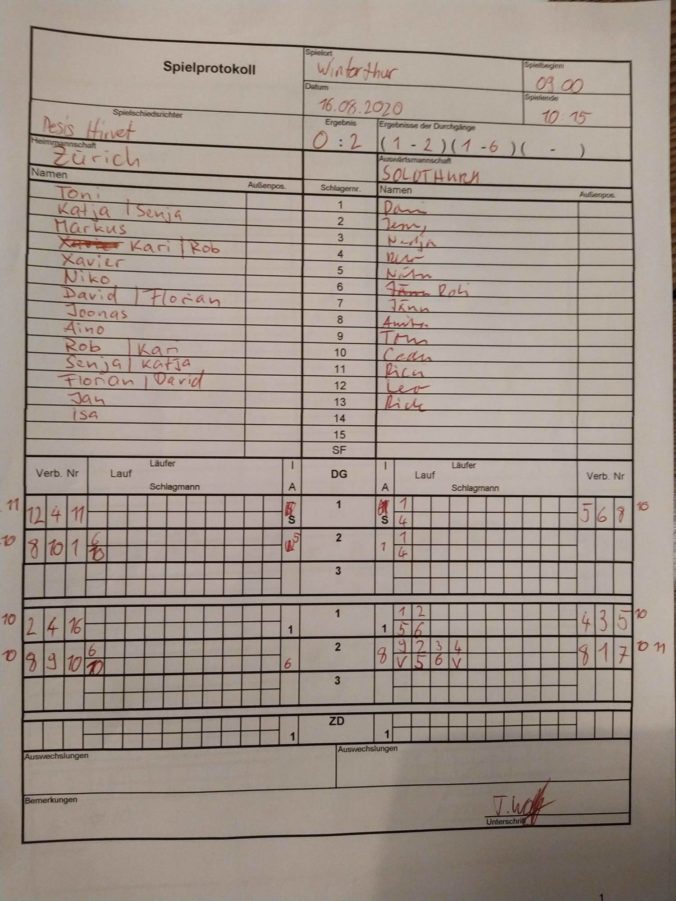 Spielprotokoll
Spielort
Winterthur
Spielbeginn
09.00
Datum
16.08.2020
Spielende
10:15
Spielschiedsrichter
Pesis Hirvet
Ergebnis
0 : 2
Ergebnisse der Durchgänge
( 1 - 2 ) ( 1 - 6 ) ( - )
Heimmannschaft
Zürich
Auswärtsmannschaft
SOLOTHURN
Namen Außenpos. Schlagernr. Namen Außenpos.
Toni 1
Katja | Senja 2
Markus 3 Nadja
Kari | Rob 4
Xavier 5
Niko 6 Rati
David | Florian 7 Jann
Joonas 8
Aino 9 Tom
Rob | Kari 10
Senja | Katja 11 Rico
Florian | David 12 Leo
Jan 13 Rick
Isa 14
15
SF
Verb. Nr Lauf Läufer Schlagmann I A DG I A Lauf Läufer Schlagmann Verb. Nr
11 12 4 11 S 1 S 1 4 5 6 8 10
10 8 10 1 6 10 2 1 1 4
3
10 2 4 16 1 1 1 1 2 5 6 4 3 5 10
10 8 9 10 6 10 6 2 8 9 2 3 4 V 5 6 V 8 1 7 10 11
3
1 ZD 1
Auswechslungen Auswechslungen
Bemerkungen
Unterschrift
1